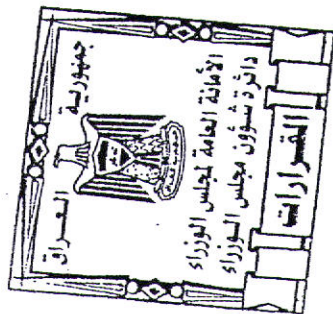 جمهورية العراق
الأمانة العامة لمجلس الوزراء
دائرة شؤون مجلس الوزراء
القرارات